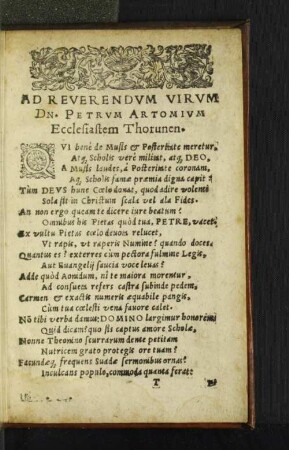 AD REVERENDVM VIRVM
DN. PETRVM ARTOMIVM
Ecclesiastem Thorunen.
QVI benè de Musis & Posteritate meretur,
Atq́; Scholis verè militat, atq́; DEO,
A Musis laudes, à Posteritate coronam,
Aq́; Scholis famæ præmia digna capit:
Tùm DEVS hunc Cœlo donat, quod adire volenti
Sola sit in Christum scala vel ala Fides.
An non ergo queam te dicere iure beatum?
Omnibus his Pietas quòd tua, PETRE, vacet.
Ex vultu Pietas cœlo deuois relucet,
Vt rapis, vt raperis Numine! quando doces.
Quantus es? exterres cùm pectora fulmine Legis,
Aut Euangelij saucia voce leuas?
Adde quòd Aonidum, ni te maiora morentur,
Ad consueta refers castra subinde pedem,
Carmen & exactis numeris æquabile pangis,
Cùm tua cœlesti vena fauore calet.
Nõ tibi verba damus: DOMINO largimur honorem:
Quid dicam? quo sis captus amore Scholæ,
Nonne Theonino scurrarum dente petitam
Nutricem grato protegis ore tuam?
Facundæq́; frequens Suadæ sermonibus ornas?
Inculcans populo, commoda quanta ferat:
T